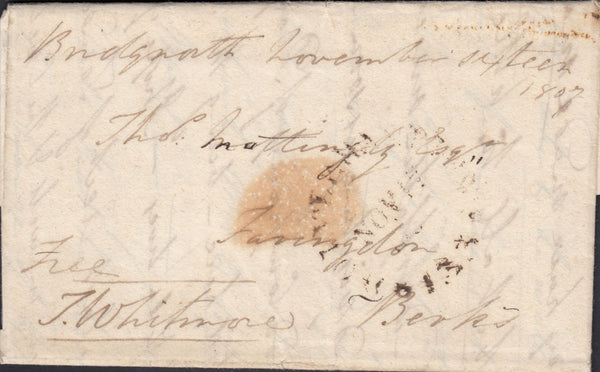 Bridgnorth November sixteen
1807
Thos. Mattingly Esqr.
Farringdon
Free
T. Whitmore Berks